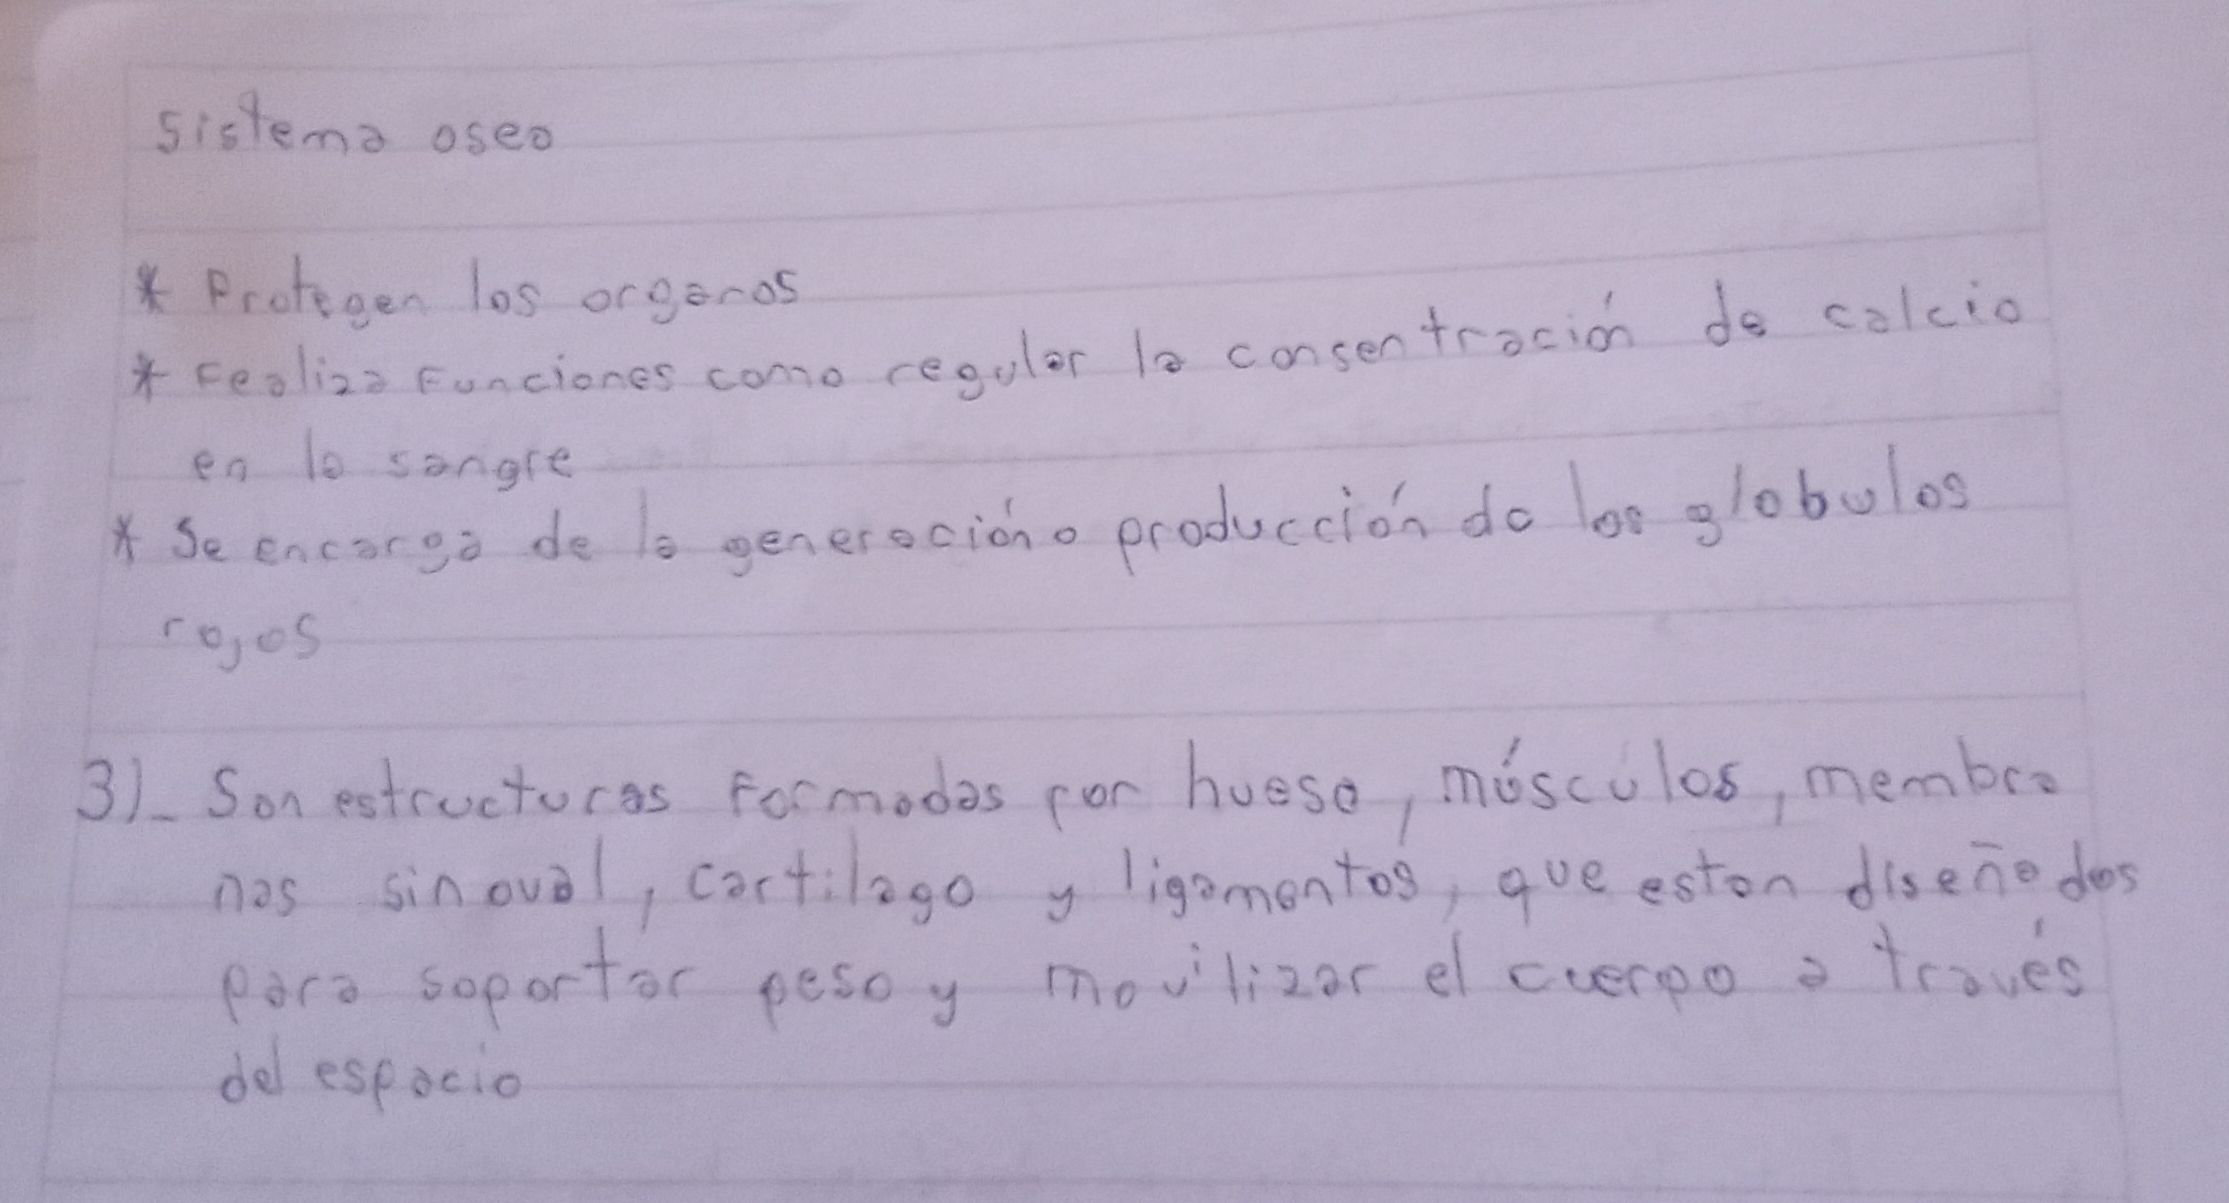 sistema oseo
* Protegen los organos
* Fealiza Funciones como regular la consentración de calcio
en la sangre
* Se encarga de la generación o producción de los globulos
rojos
3)_ Son estructuras Formadas por hueso, músculos, membra
nas sinoval, cartilago y ligamentos, que estan diseñados
para soportar peso y movilizar el cuerpo a través
del espacio